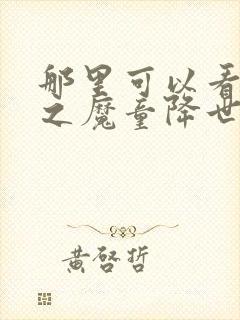 那里可以看
之魔童降世
黄启哲